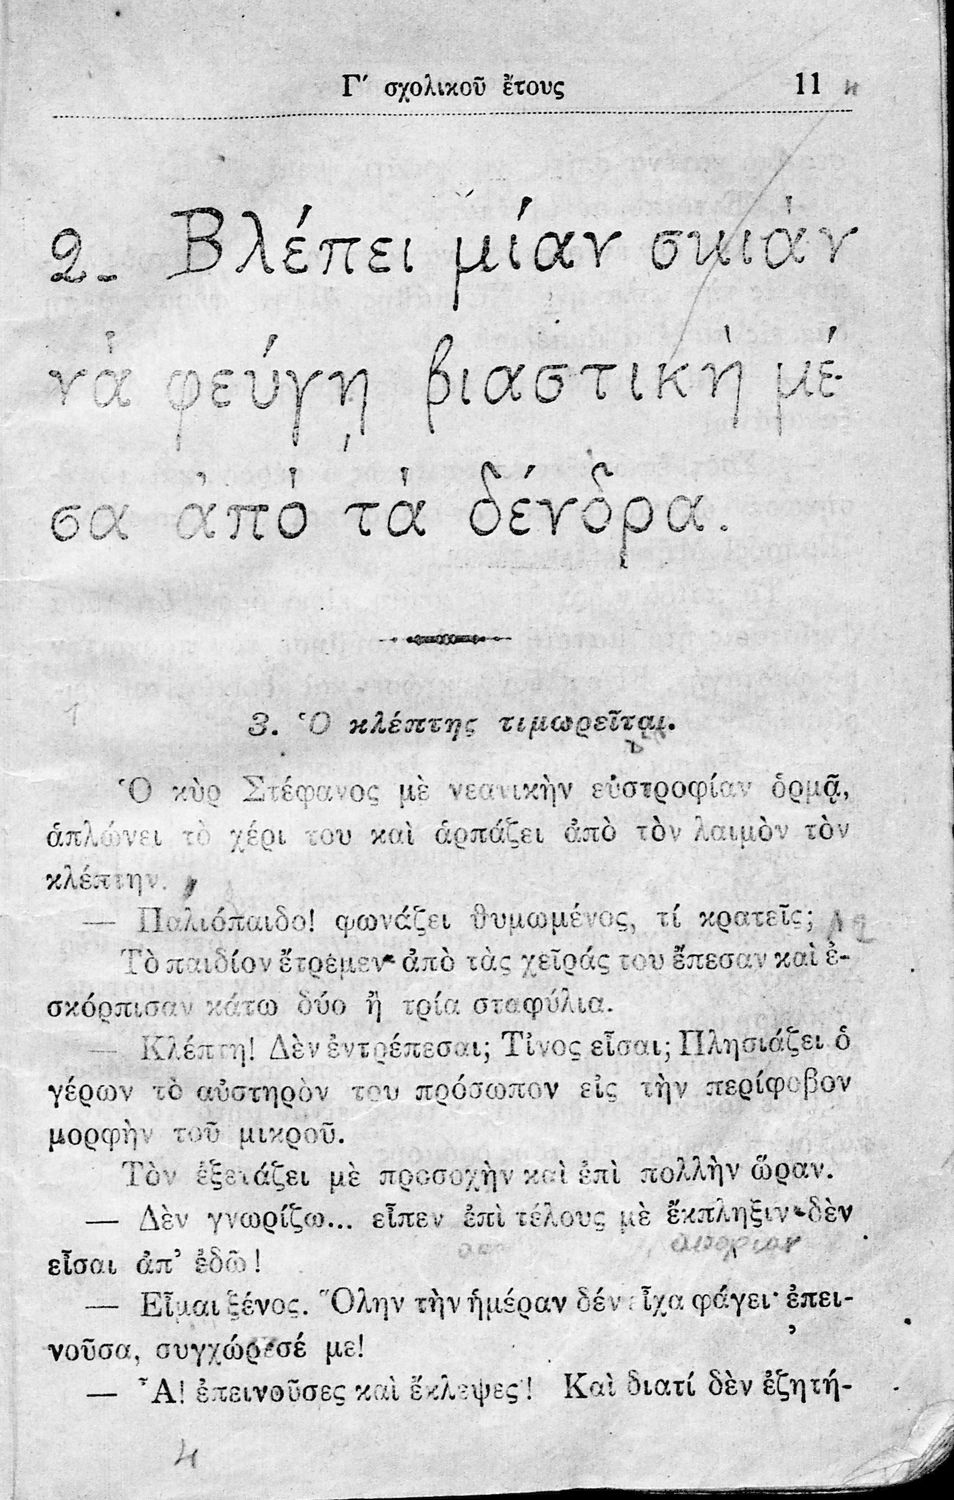 Γ′ σχολικοῦ ἔτους 11
2. Βλέπει μίαν σκιὰν
νὰ φεύγῃ βιαστικὴ μέ-
σα ἀπὸ τὰ δένδρα.
3. Ὁ κλέπτης τιμωρεῖται.
Ὁ κὺρ Στέφανος μὲ νεανικὴν εὐστροφίαν ὁρμᾷ,
ἁπλώνει τὸ χέρι του καὶ ἁρπάζει ἀπὸ τὸν λαιμὸν τὸν
κλέπτην.
— Παλιόπαιδο! φωνάζει θυμωμένος, τί κρατεῖς;
Τὸ παιδίον ἔτρεμεν· ἀπὸ τὰς χεῖράς του ἔπεσαν καὶ ἐ-
σκόρπισαν κάτω δύο ἢ τρία σταφύλια.
— Κλέπτη! Δὲν ἐντρέπεσαι; Τίνος εἶσαι; Πλησιάζει ὁ
γέρων τὸ αὐστηρὸν του πρόσωπον εἰς τὴν περίφοβον
μορφὴν τοῦ μικροῦ.
Τὸν ἐξετάζει μὲ προσοχὴν καὶ ἐπὶ πολλὴν ὥραν.
— Δὲν γνωρίζω... εἶπεν ἐπὶ τέλους μὲ ἔκπληξιν· δὲν
ἀπορίαν
εἶσαι ἀπ’ ἐδῶ!
— Εἶμαι ξένος. Ὅλην τὴν ἡμέραν δέν εἶχα φάγει· ἐπει-
νοῦσα, συγχώρεσέ με!
— Ἆ! ἐπεινοῦσες καὶ ἔκλεψες! Καὶ διατί δὲν ἐζητή-
4